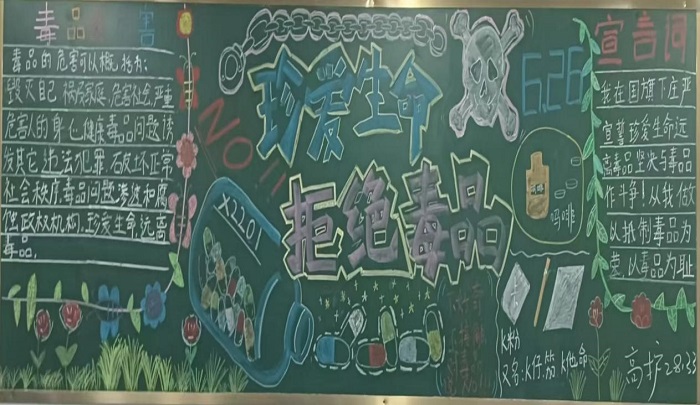 毒品 害
毒品的危害可以概括为:
毁灭自己 祸及家庭,危害社会,严重
危害人的身心健康毒品问题诱
发其它违法犯罪,破坏正常
社会秩序毒品问题渗透和腐
政权机构.珍爱生命远离
毒品,
NO!!
X2201
珍爱生命
拒绝毒品
6.26
吗啡
K粉
又名:K仔 K他命
宣言词
我在国旗下庄严
宣誓珍爱生命远
离毒品坚决与毒品
作斗争!从我做
以抵制毒品为
荣.以毒品为耻
高护